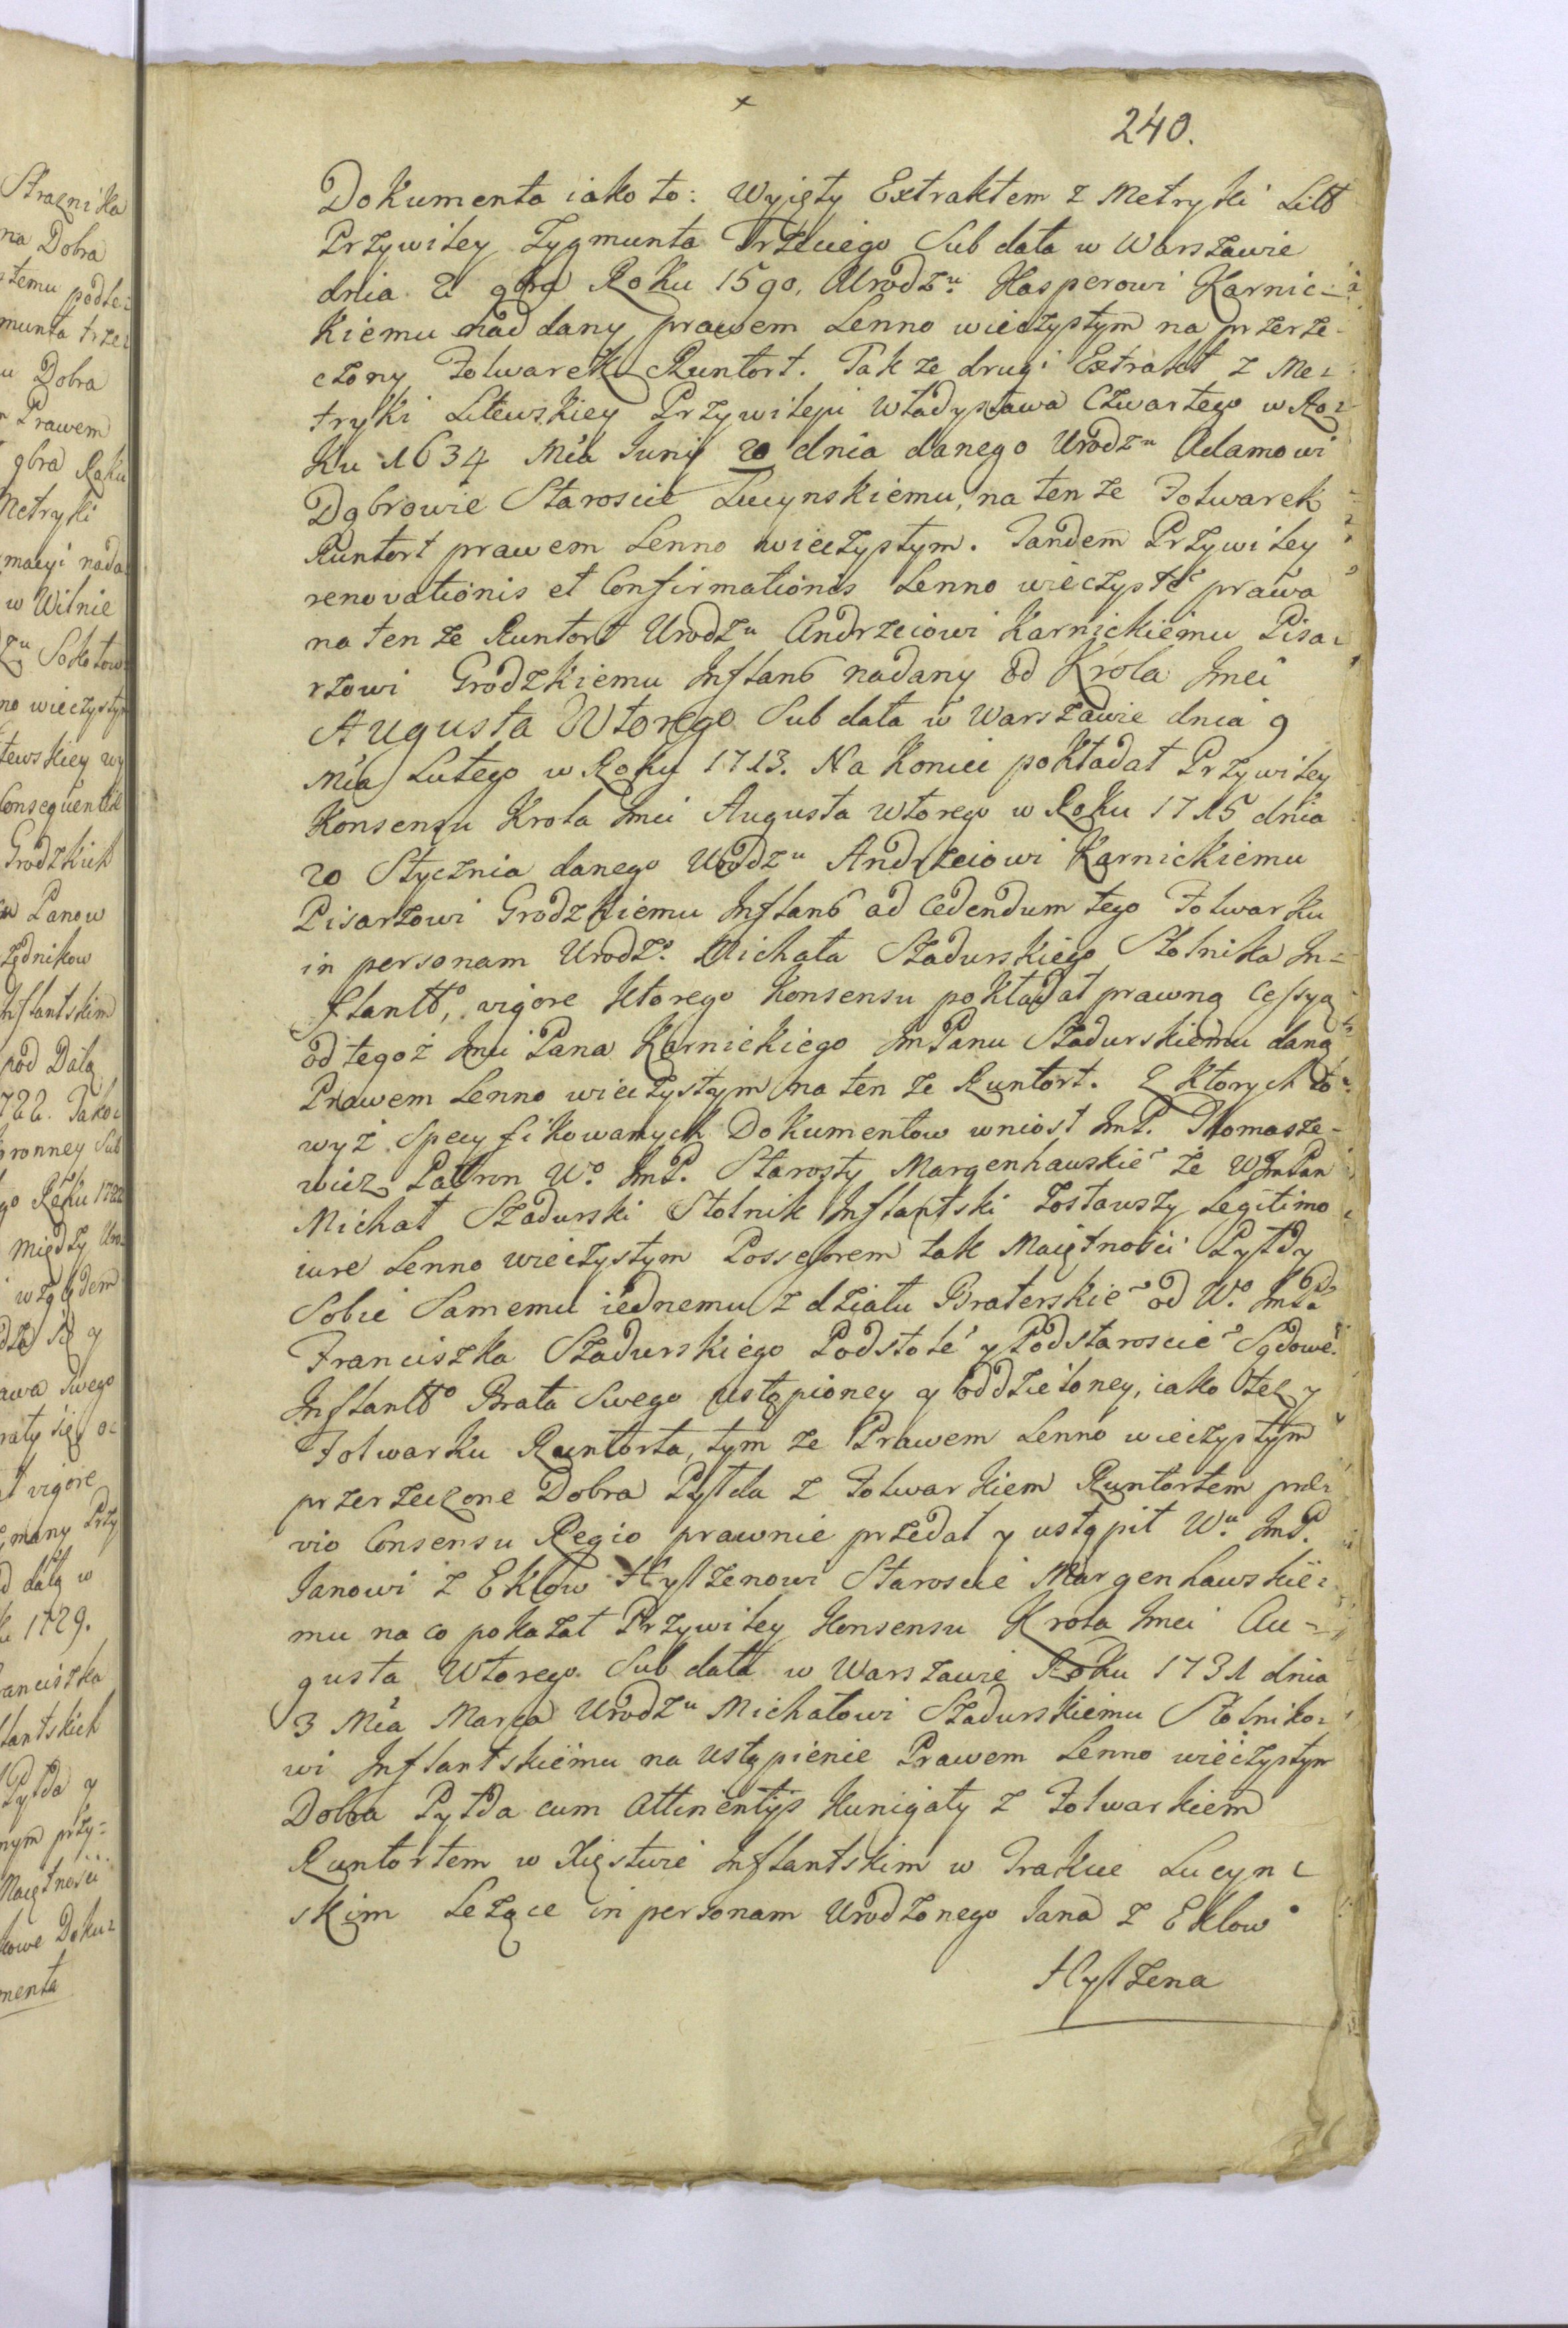 240.
Dokumenta iako to: Wyięty Extraktem z Metryki Litt
Przywiley Zygmunta Trzeciego Sub data w Warszawie
dnia 2 9bra Roku 1590. Urodz.u Kasperowi Karnic-
kiemu nad dany, prawem Lenno wieczystym na przerze-
czony Folwarek Runtort. Tak ze drugi Extrakt z Me-
tryki Litewskiey Przywileju Władysława Czwartego w Ro-
ku 1634 Mca Junij 20 dnia danego Urodz.u Adamowi
Dąbrowie Staroscie Lucynskiemu, na ten ze Folwarek
Runtort prawem Lenno wieczystym. Tandem Przywiley
renovationis et Confirmationis Lenno wieczysté prawa
na ten ze Runtort Urodz.u Andrzeiowi Karnickiemu Pisa-
rzowi Grodzkiemu Inflant nadany od Krola Jmci
Augusta Wtorego Sub data w Warszawie dnia 9
Mca Lutego w Roku 1713. Na koniec pokładał Przywiley
Konsensu Krola Jmci Augusta Wtorego w Roku 1715 dnia
20 Stycznia danego Urodz.u Andrzeiowi Karnickiemu
Pisarzowi Grodzkiemu Inflant ad Cedendum tego Folwarku
in personam Urodz.o Michała Szadurskiego Stolnika In-
flantt.o, vigore ktorego Konsensu pokładał prawną Cessyą
od tegoż Jmci Pana Karnickiego JmPanu Szadurskiemu daną
Prawem Lenno wieczystym na ten ze Runtort. Z ktorych to
wyż Specyfikowanych Dokumentow wniosł JmP. Thomasze-
wicz Patron W.o JmP. Starosty Margenhauskié ze WJmPan
Michał Szadurski Stolnik Inflantski zostawszy Legitimo
iure Lenno wieczystym Possessorem tak Maiętności Pyłdy
Sobie Samemu iednemu z działu Braterskié od W.o JmPa
Franciszka Szadurskiego Podstolé y Podstaroscié Sądowé
Inflantt.o Brata Swego ustąpioney y oddzieloney, iako tez y
Folwarku Runtorta, tym ze Prawem Lenno wieczystym
przerzeczone Dobra Pyłda z Folwarkiem Runtortem prae-
vio Consensu Regio prawnie przedał y ustąpił W.u JmP.
Janowi z Eklow Hylzenowi Staroscie Margenhawskie-
mu na co pokazał Przywiley Konsensu Krola Jmci Au-
gusta Wtorego Sub data w Warszawie Roku 1731 dnia
3 Mca Marca Urodz.u Michałowi Szadurskiemu Stolniko-
wi Inflantskiemu na ustąpienie Prawem Lenno wieczystym
Dobra Pyłda cum attinentijs Kunigały z Folwarkiem
Runtortem w Xięstwie Inflantskim w Trakcie Lucyn-
skim Leżące in personam Urodzonego Jana z Eklow
Hylzena